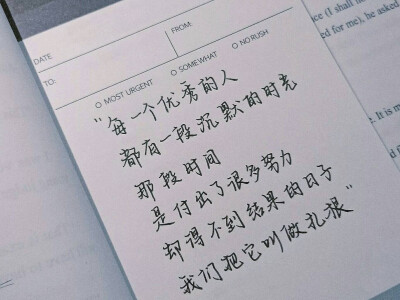 ce (I shall
ed for me), he asked
DATE
FROM:
TO:
○ MOST URGENT ○ SOMEWHAT ○ NO RUSH
“每一个优秀的人
都有一段沉默的时光
那段时间
是付出了很多努力
却得不到结果的日子
我们把它叫做扎根”
It is m